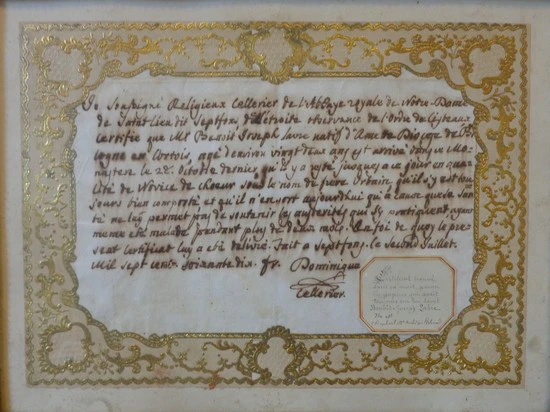 Je soussigné Religieux Cellerier de l'Abbaye royale de Notre-Dame
de Saint Lieu dit Septfons d'Etroite observance de l'Ordre de Citeaux
Certifie que Mr Benoit Joseph Labre natif d'Amette Diocese de Bo
logne en Artois, agé d'environ vingt deux ans est arrivé dans ce Mo
nastere le 28 d'octobre dernier qu'il y a resté jusques a ce jour en qua
lité de Novice de choeur sous le nom de frere Urbain, qu'il s'y est tou
jours bien comporté et qu'il n'en sort aujourd'hui qu'a cause que sa san
té ne luy permet pas de soutenir les austerités qui s'y pratiquent ayant
meme eté malade pendant plus de deux mois. En foi de quoy le pre
sent certificat luy a eté delivré. Fait a Septfons, le second Juillet.
Mil sept cent soixante dix. fr. Dominique
Cellerier.